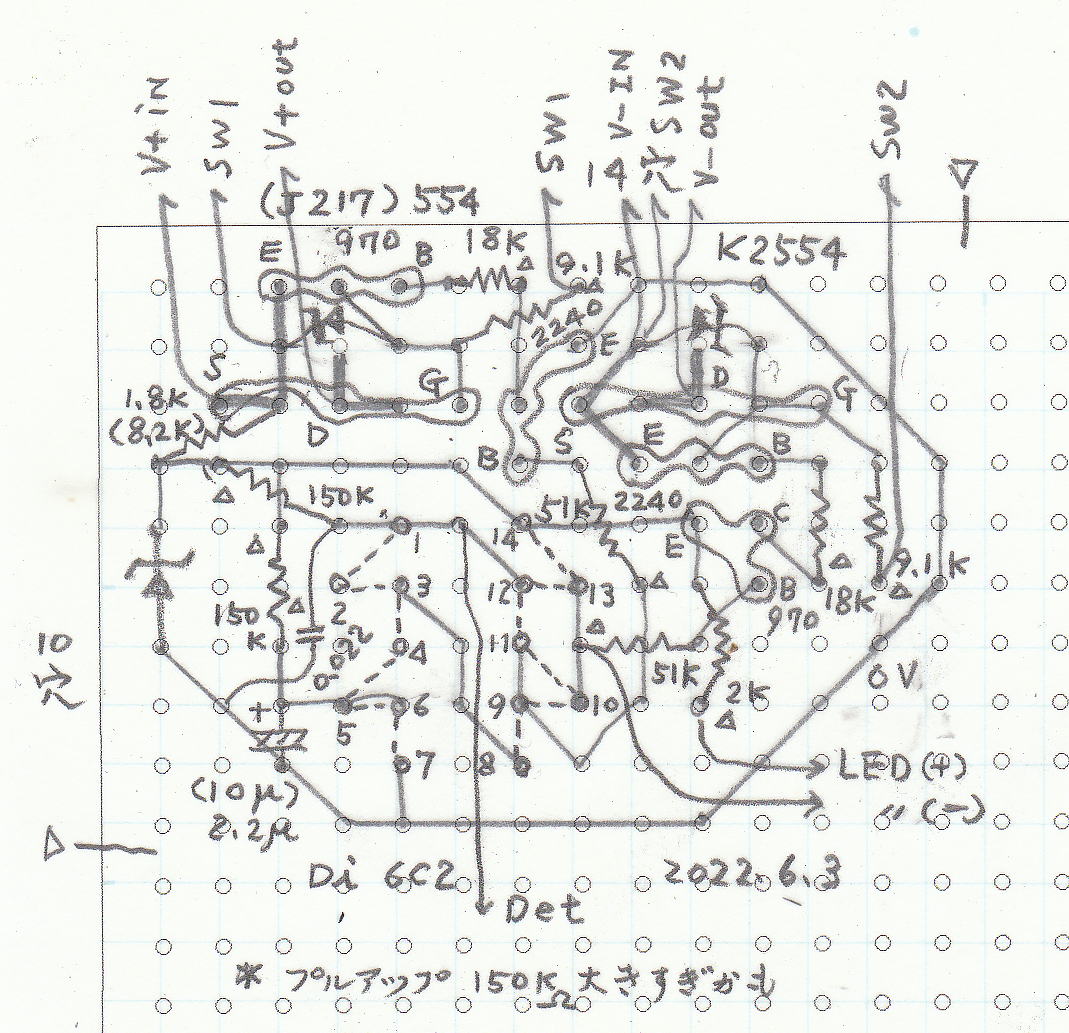 V+iN
SW1
V+out
SW1
V-IN
14穴
SW2
V-out
SW2
(J217) 554
E
970
B
18K
9.1K
K2554
2240
E
S
G
D
1.8K
(8.2K)
D
G
B
S
E
B
150K
51K
2240
C
1
14
E
2
3
12
13
B
18K
9.1K
970
150
K
10
穴
0.022
4
11
51K
0V
+
5
6
9
10
2K
7
8
LED(+)
〃(-)
(10μ)
2.2μ
Di 6C2
2022.6.3
Det
* プルアップ 150KΩ大きすぎかも